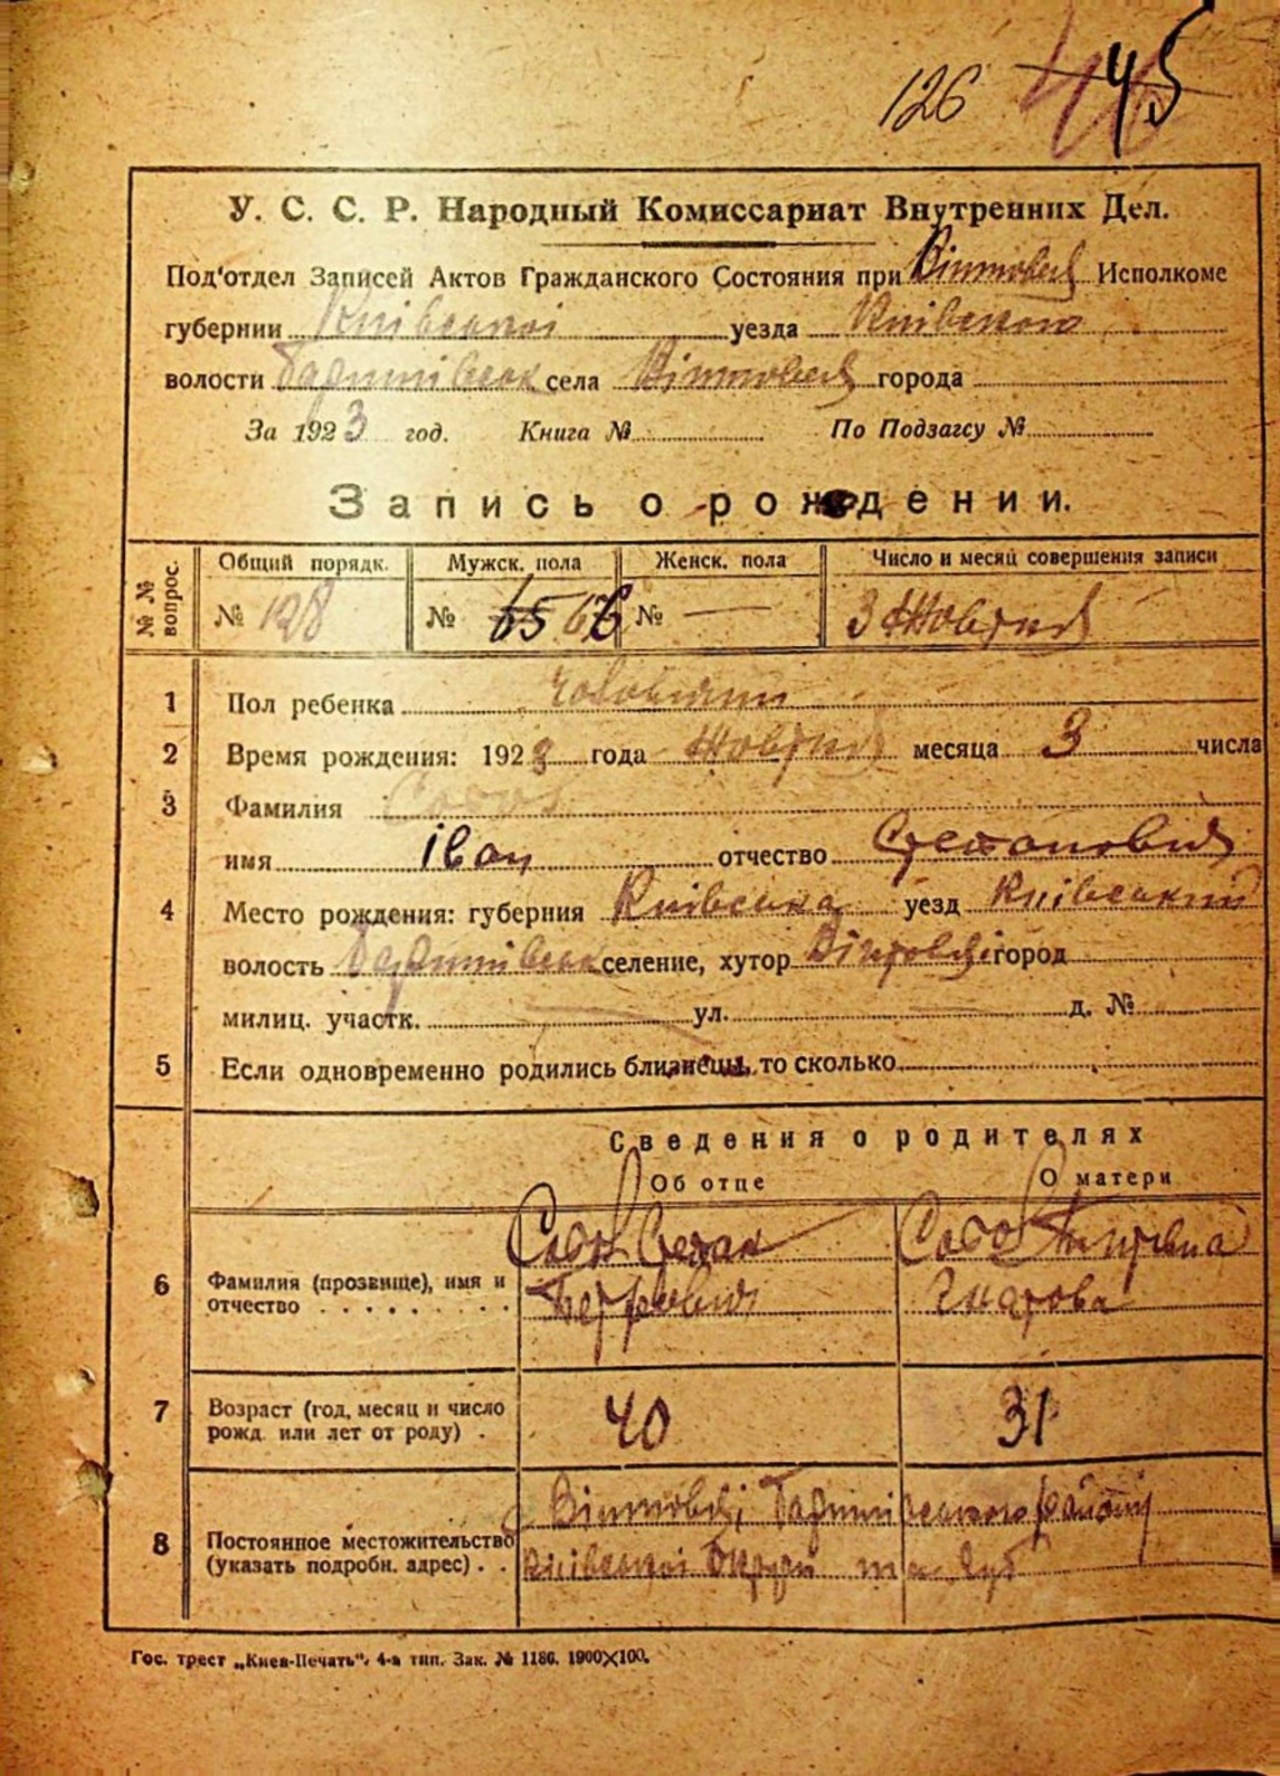 126 45
У. С. С. Р. Народный Комиссариат Внутренних Дел.
Под'отдел Записей Актов Гражданского Состояния при Исполкоме
губернии Київської уезда Київского
волости села города
За 1923 год. Книга № По Подзагсу №
Запись о рождении.
№ № вопрос. Общий порядк. Мужск. пола Женск. пола Число и месяц совершения записи
№ 128 № 65 66 № — 3 Жовтня
1 Пол ребенка
2 Время рождения: 1923 года Жовтня месяца 3 числа
3 Фамилия
имя Іван отчество Степанович
4 Место рождения: губерния Київська уезд Київський
волость селение, хутор город
милиц. участк. ул. д. №
5 Если одновременно родились близнецы, то сколько
Сведения о родителях
Об отце О матери
6 Фамилия (прозвище), имя и отчество Степан Петрович
7 Возраст (год, месяц и число рожд. или лет от роду) 40 31
8 Постоянное местожительство (указать подробн. адрес) району
Київської Округи
Гос. трест „Киев-Печать". 4-я тип. Зак. № 1186. 1900×100.